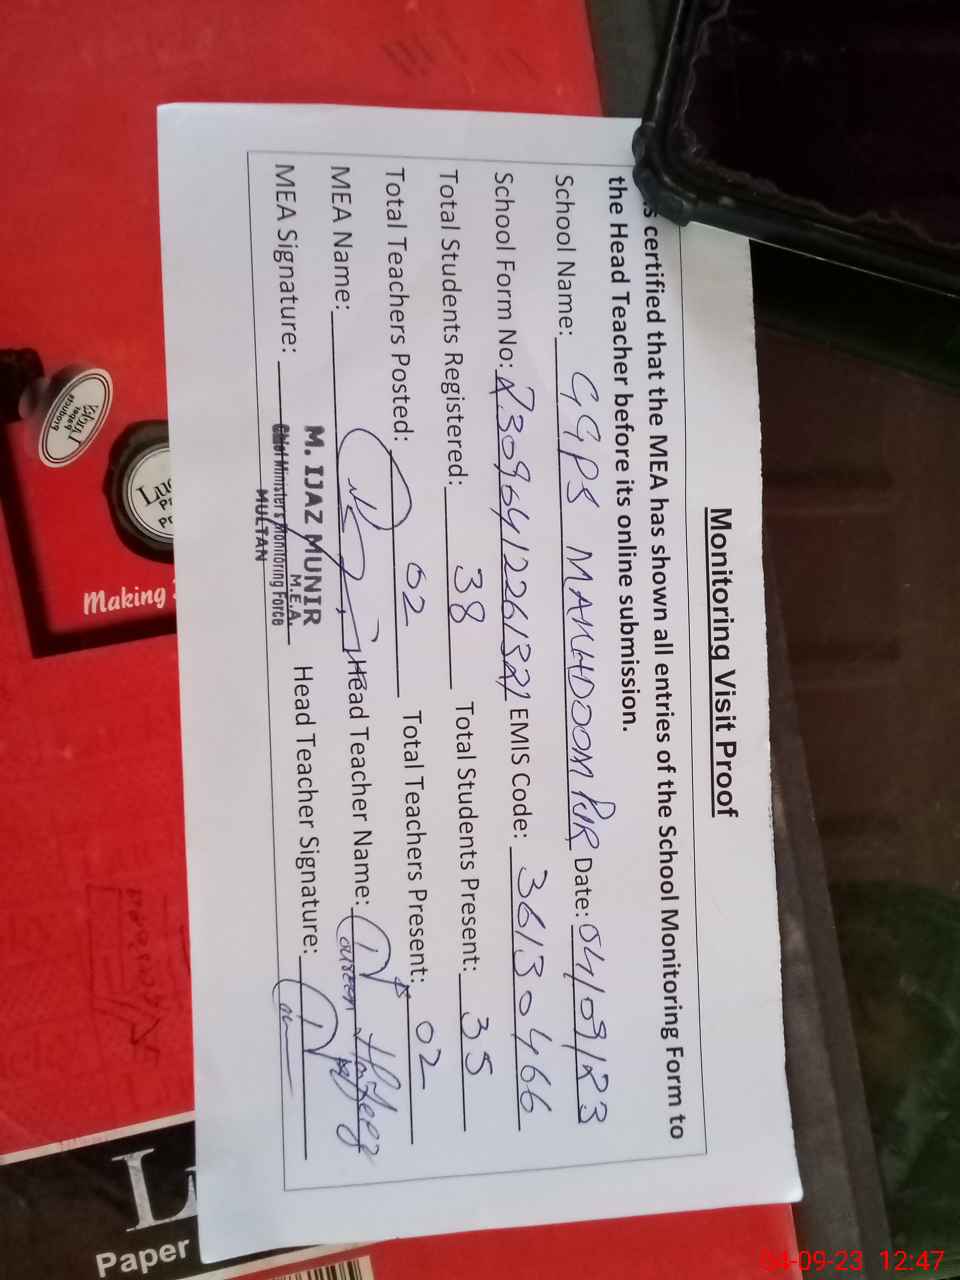 Monitoring Visit Proof
is certified that the MEA has shown all entries of the School Monitoring Form to
the Head Teacher before its online submission.
School Name: GGPS MAKHDOOM PUR Date: 04/09/23
School Form No: 23096412261321 EMIS Code: 36130466
Total Students Registered: 38 Total Students Present: 35
Total Teachers Posted: 02 Total Teachers Present: 02
MEA Name: Head Teacher Name: Hafeez
MEA Signature: Head Teacher Signature:
M. IJAZ MUNIR
M.E.A.
Chief Minister's Monitoring Force
MULTAN
Making
Paper
04-09-23 12:47